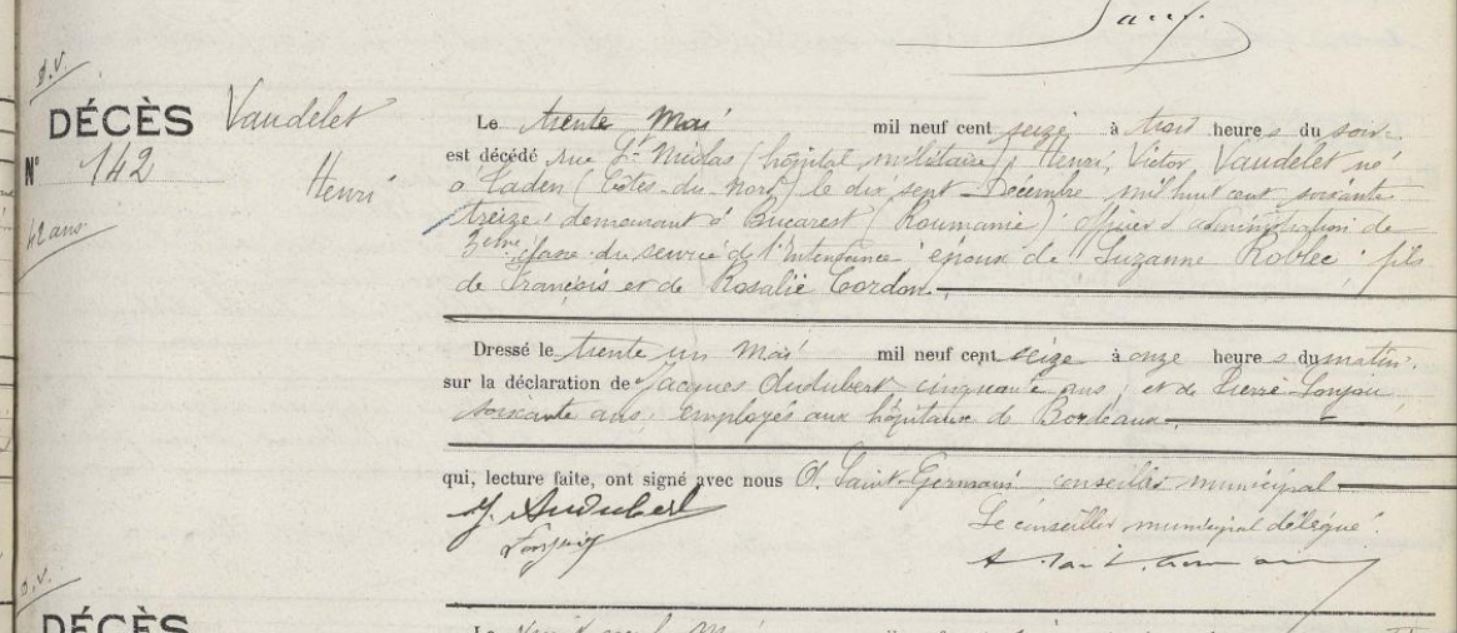 D.V.
DÉCÈS
N° 142
42 ans
Vaudelet
Henri
Le trente Mai mil neuf cent seize, à trois heures du soir
est décédé rue St Nicolas (hôpital militaire), Henri, Victor, Vaudelet né
à Taden (Côtes-du-Nord) le dix sept Décembre mil huit cent soixante
treize, demeurant à Bucarest (Roumanie), officier d'administration de
3ème classe du service de l'Intendance, époux de Suzanne Roblec, fils
de François et de Rosalie Cordon.
Dressé le trente un Mai mil neuf cent seize à onze heures du matin.
sur la déclaration de Jacques Audubert cinquante ans, et de Pierre Lonjou
soixante ans, employés aux hôpitaux de Bordeaux
qui, lecture faite, ont signé avec nous A. Saint-Germain conseiller municipal
J. Audubert
Le conseiller municipal délégué.
D.V.
DÉCÈS
Le Mai